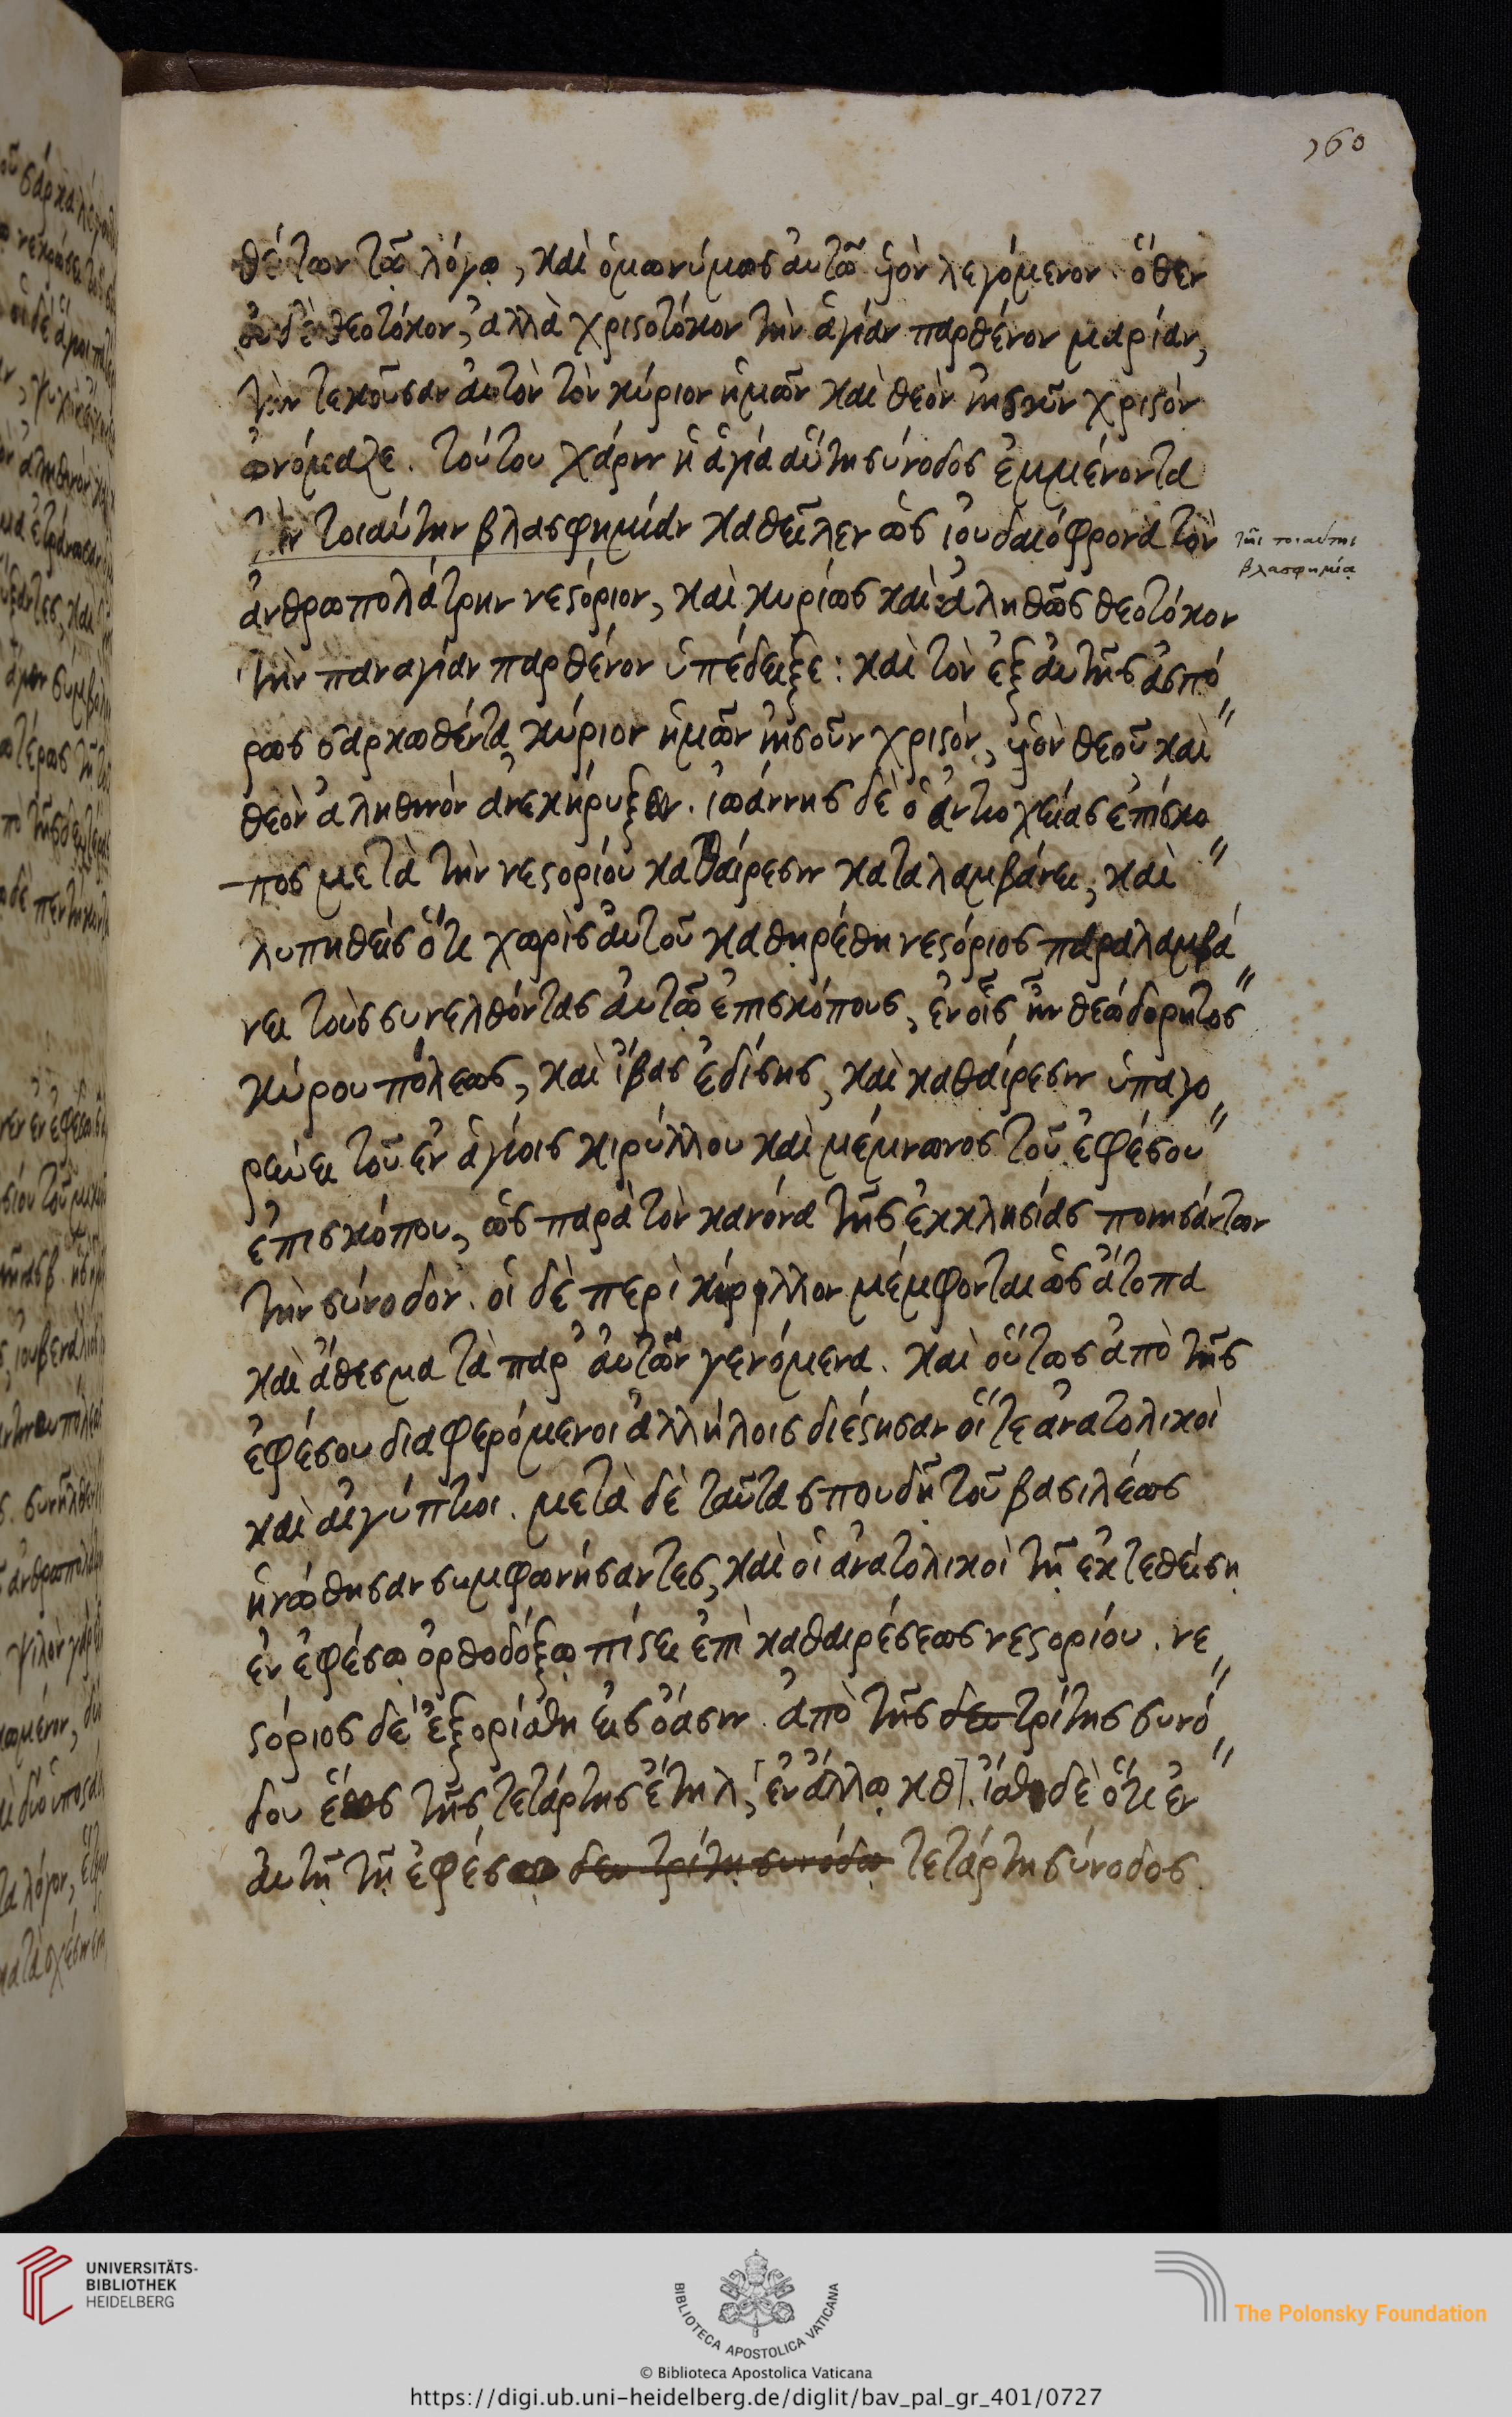 360
θέτων τῷ λόγῳ, καὶ ὁμωνύμως αὐτῷ υἱὸν λεγόμενον. ὅθεν
οὐδὲ θεοτόκον, ἀλλὰ χριστοτόκον τὴν ἁγίαν παρθένον μαρίαν,
τὴν τεκοῦσαν αὐτὸν τὸν κύριον ἡμῶν καὶ θεὸν ἰησοῦν χριστὸν
ὠνόμαζε. τούτου χάριν ἡ ἁγία αὕτη σύνοδος ἐμμένοντα
τὴν τοιαύτην βλασφημίαν καθεῖλεν ὡς ἰουδαιόφρονα τὸν
τῆι τοιαύτηι
βλασφημίᾳ
ἀνθρωπολάτρην νεστόριον, καὶ κυρίως καὶ ἀληθῶς θεοτόκον
τὴν παναγίαν παρθένον ὑπέδειξε: καὶ τὸν ἐξ αὐτῆς ἀσπό
ρως σαρκωθέντα κύριον ἡμῶν ἰησοῦν χριστόν, υἱὸν θεοῦ καὶ
θεὸν ἀληθινὸν ἀνεκήρυξεν. ἰωάννης δὲ ὁ ἀντιοχείας ἐπίσκο
πος μετὰ τὴν νεστορίου καθαίρεσιν καταλαμβάνει, καὶ
λυπηθεὶς ὅτι χωρὶς αὐτοῦ καθηρέθη νεστόριος παραλαμβά
νει τοὺς συνελθόντας αὐτῷ ἐπισκόπους, ἐν οἷς ἦν θεοδώρητος
κύρου πόλεως, καὶ ἴβας ἐδίσης, καὶ καθαίρεσιν ὑπαγο
ρεύει τοῦ ἐν ἁγίοις κιρύλλου καὶ μέμνωνος τοῦ ἐφέσου
ἐπισκόπου, ὡς παρὰ τὸν κανόνα τῆς ἐκκλησίας ποιησάντων
τὴν σύνοδον. οἱ δὲ περὶ κύριλλον μέμφονται ὡς ἄτοπα
καὶ ἄθεσμα τὰ παρ' αὐτῶν γενόμενα. καὶ οὕτως ἀπὸ τῆς
ἐφέσου διαφερόμενοι ἀλλήλοις διέστησαν οἵ τε ἀνατολικοὶ
καὶ αἰγύπτιοι. μετὰ δὲ ταῦτα σπουδῇ τοῦ βασιλέως
ἡνώθησαν συμφωνήσαντες, καὶ οἱ ἀνατολικοὶ τῇ ἐκτεθείσῃ
ἐν ἐφέσῳ ὀρθοδόξῳ πίστει ἐπὶ καθαιρέσεως νεστορίου. νε
στόριος δὲ ἐξορίσθη εἰς ὄασιν. ἀπὸ τῆς δευ τρίτης συνό
δου ἕως τῆς τετάρτης ἔτη λ, [ἐν ἄλλῳ κθ]. δὲ ὅτι ἐν
αὐτῇ τῇ ἐφέσῳ δευ τρίτῃ συνόδῳ τετάρτη σύνοδος.
UNIVERSITÄTS-
BIBLIOTHEK
HEIDELBERG
BIBLIOTECA APOSTOLICA VATICANA
© Biblioteca Apostolica Vaticana
The Polonsky Foundation
https://digi.ub.uni-heidelberg.de/diglit/bav_pal_gr_401/0727